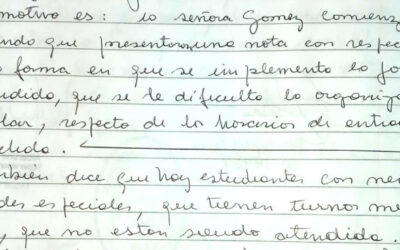 motivo es: la señora Gomez comienz
ndo que presentaron una nota con respec
forma en que se implemento la jo
ndida, que se le dificulta la organiza
lar, respecto de los horarios de entra
alida.
mbién dice que hay estudiantes con nec
des especiales, que tienen turnos mé
, que no estan siendo atendida